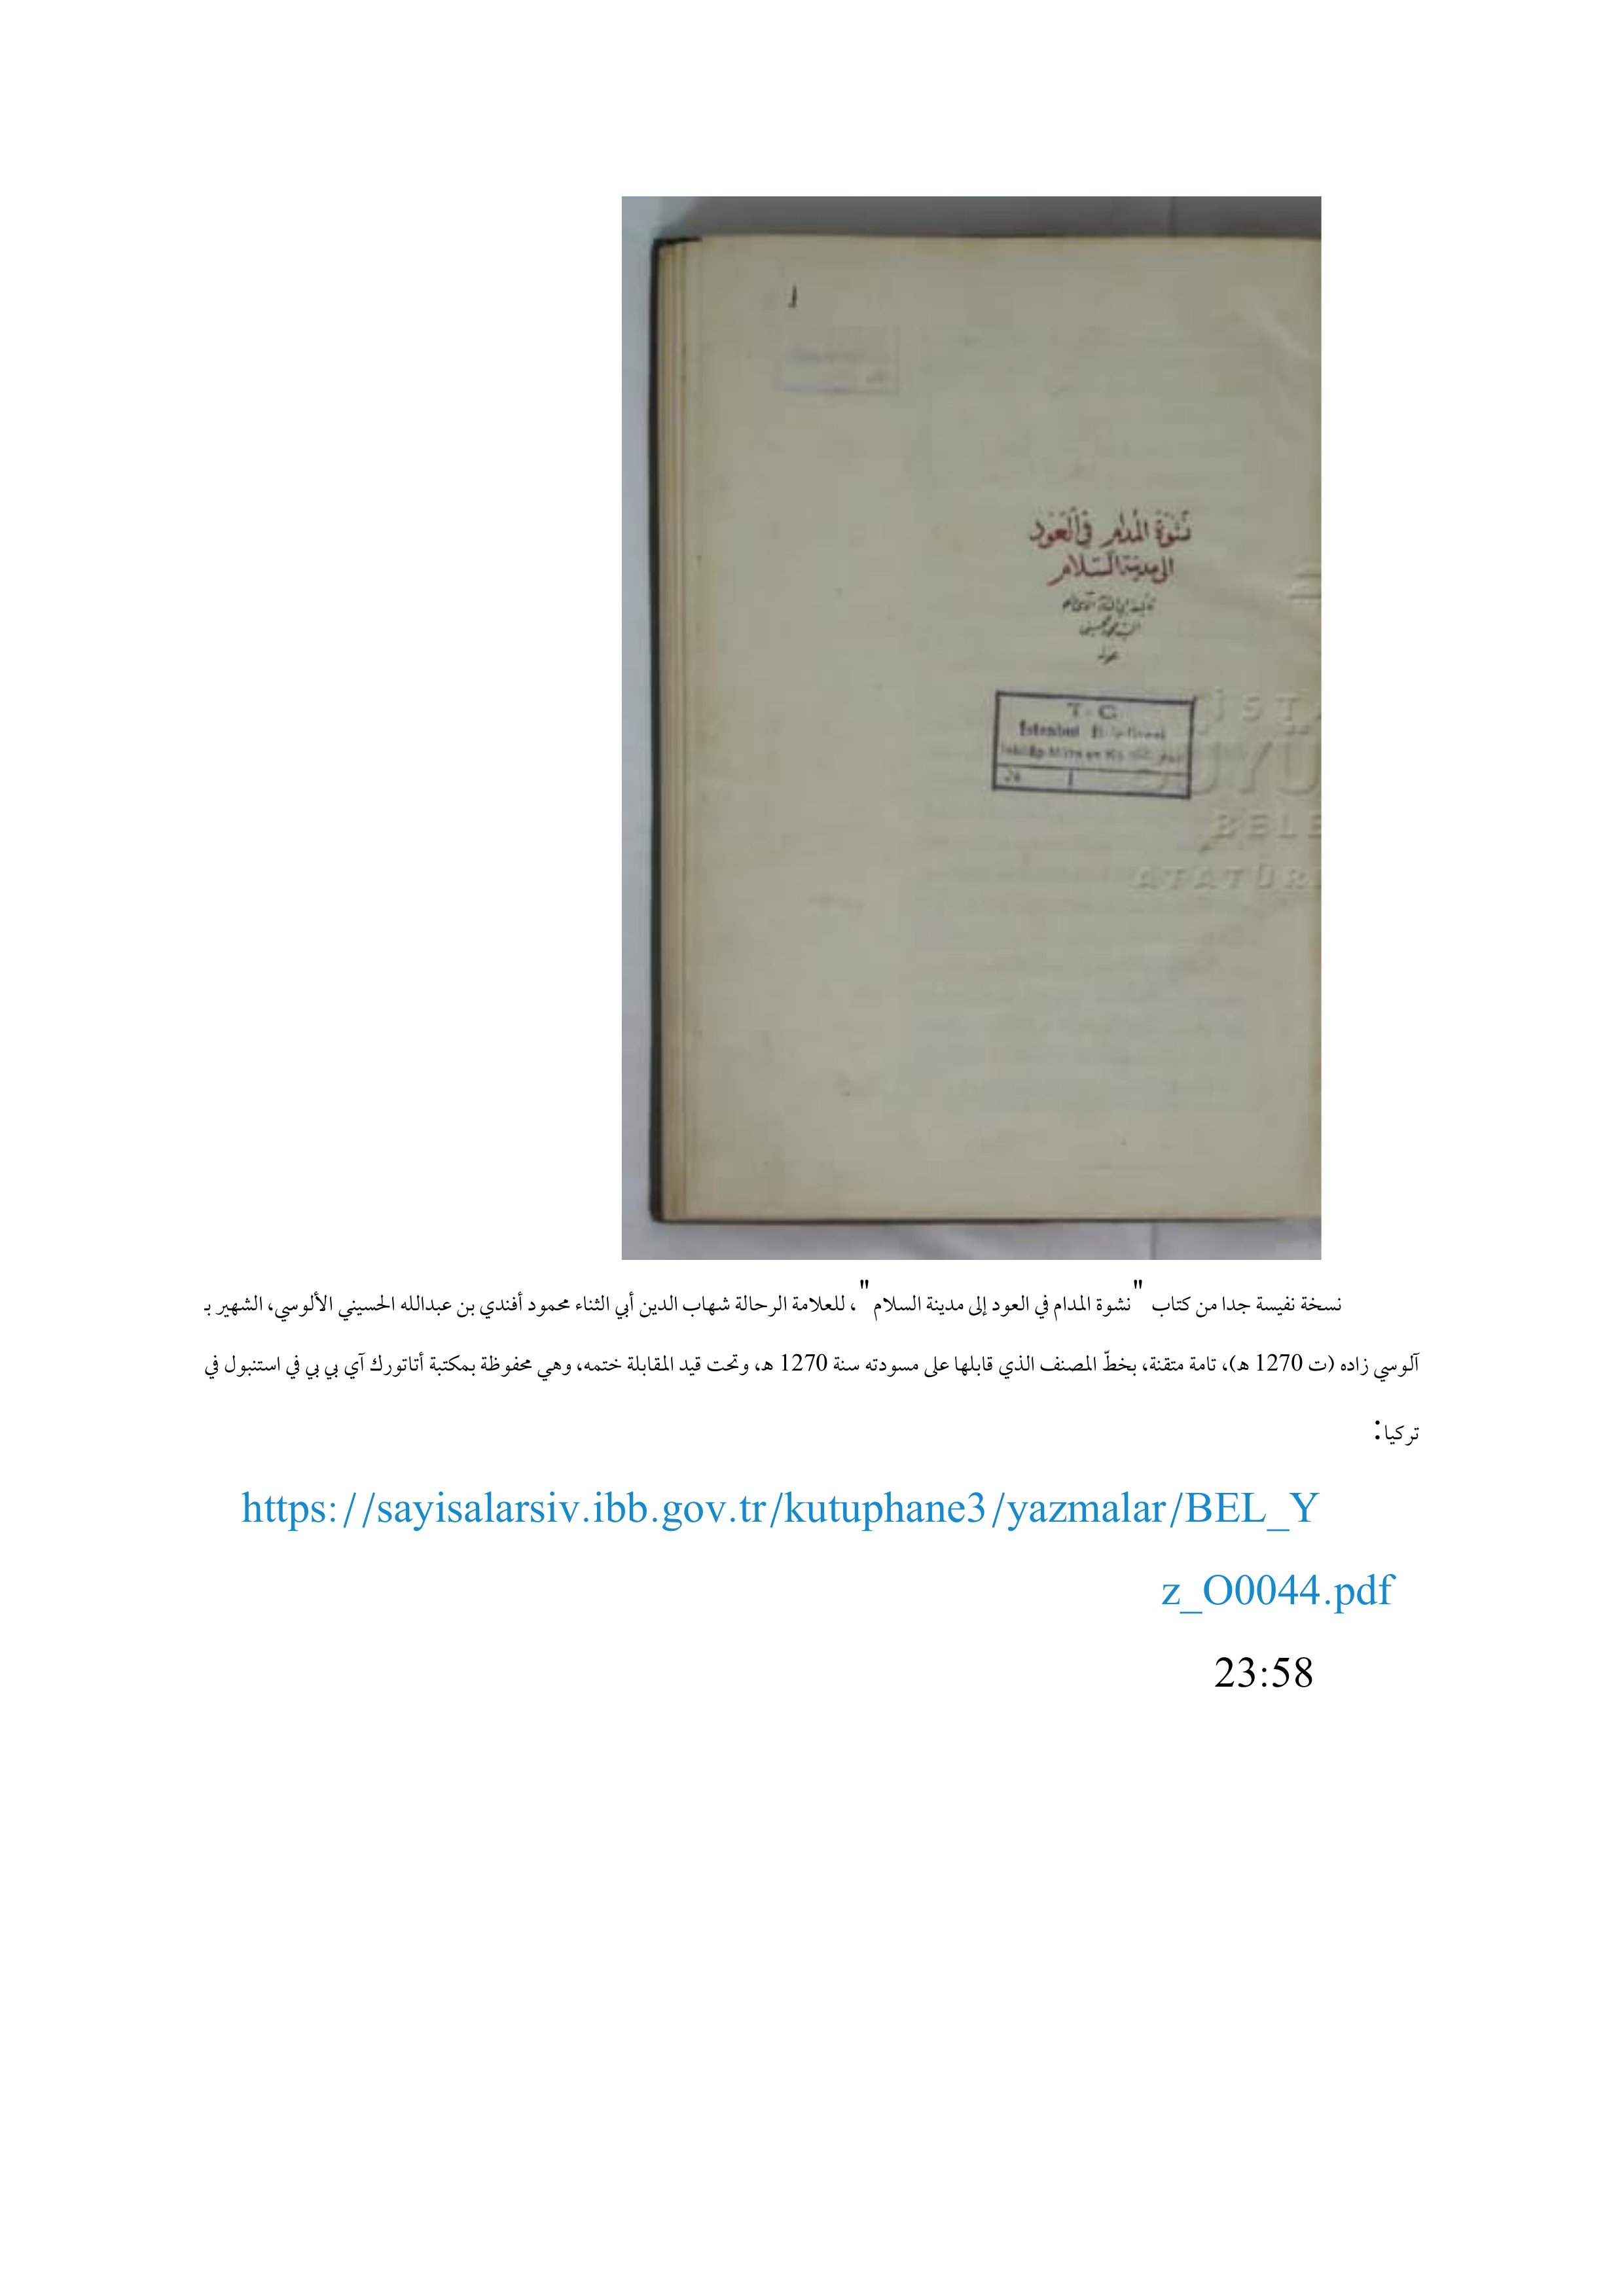 1
نشوة المدام في العود
الى مدينة السلام
السيد محمود
T. C.
Istanbul Belediyesi
İST
BÜYÜ
BELE
ATATÜR
نسخة نفيسة جدا من كتاب "نشوة المدام في العود إلى مدينة السلام"، للعلامة الرحالة شهاب الدين أبي الثناء محمود أفندي بن عبدالله الحسيني الألوسي، الشهير بـ
آلوسي زاده (ت 1270 هـ)، تامة متقنة، بخطّ المصنف الذي قابلها على مسودته سنة 1270 هـ، وتحت قيد المقابلة ختمه، وهي محفوظة بمكتبة أتاتورك آي بي بي في استنبول في
تركيا:
https://sayisalarsiv.ibb.gov.tr/kutuphane3/yazmalar/BEL_Y
z_O0044.pdf
23:58